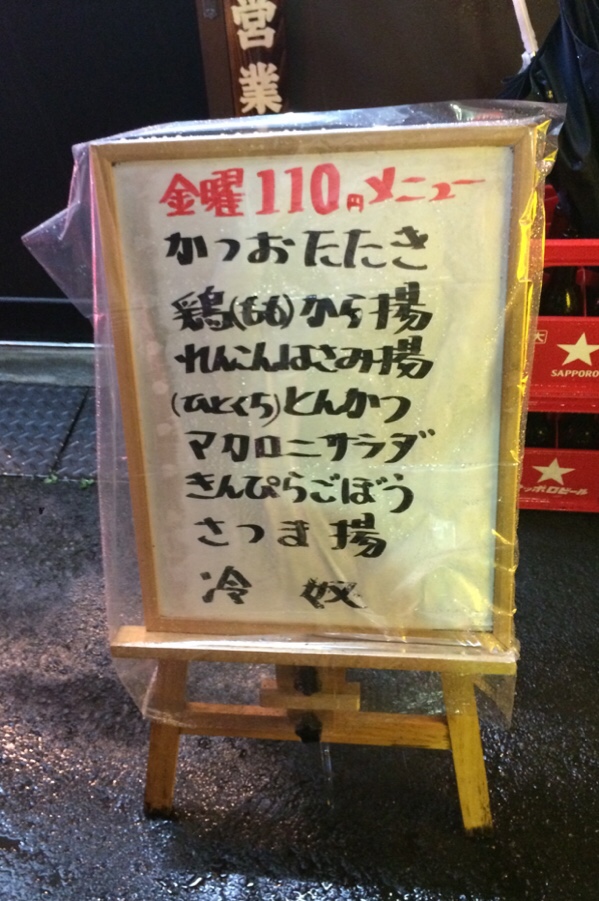 営業
金曜110円メニュー
かつおたたき
鶏(もも)から揚
れんこんはさみ揚
(ひとくち)とんかつ
マカロニサラダ
きんぴらごぼう
さつま揚
冷奴
大
SAPPORO
サッポロビール